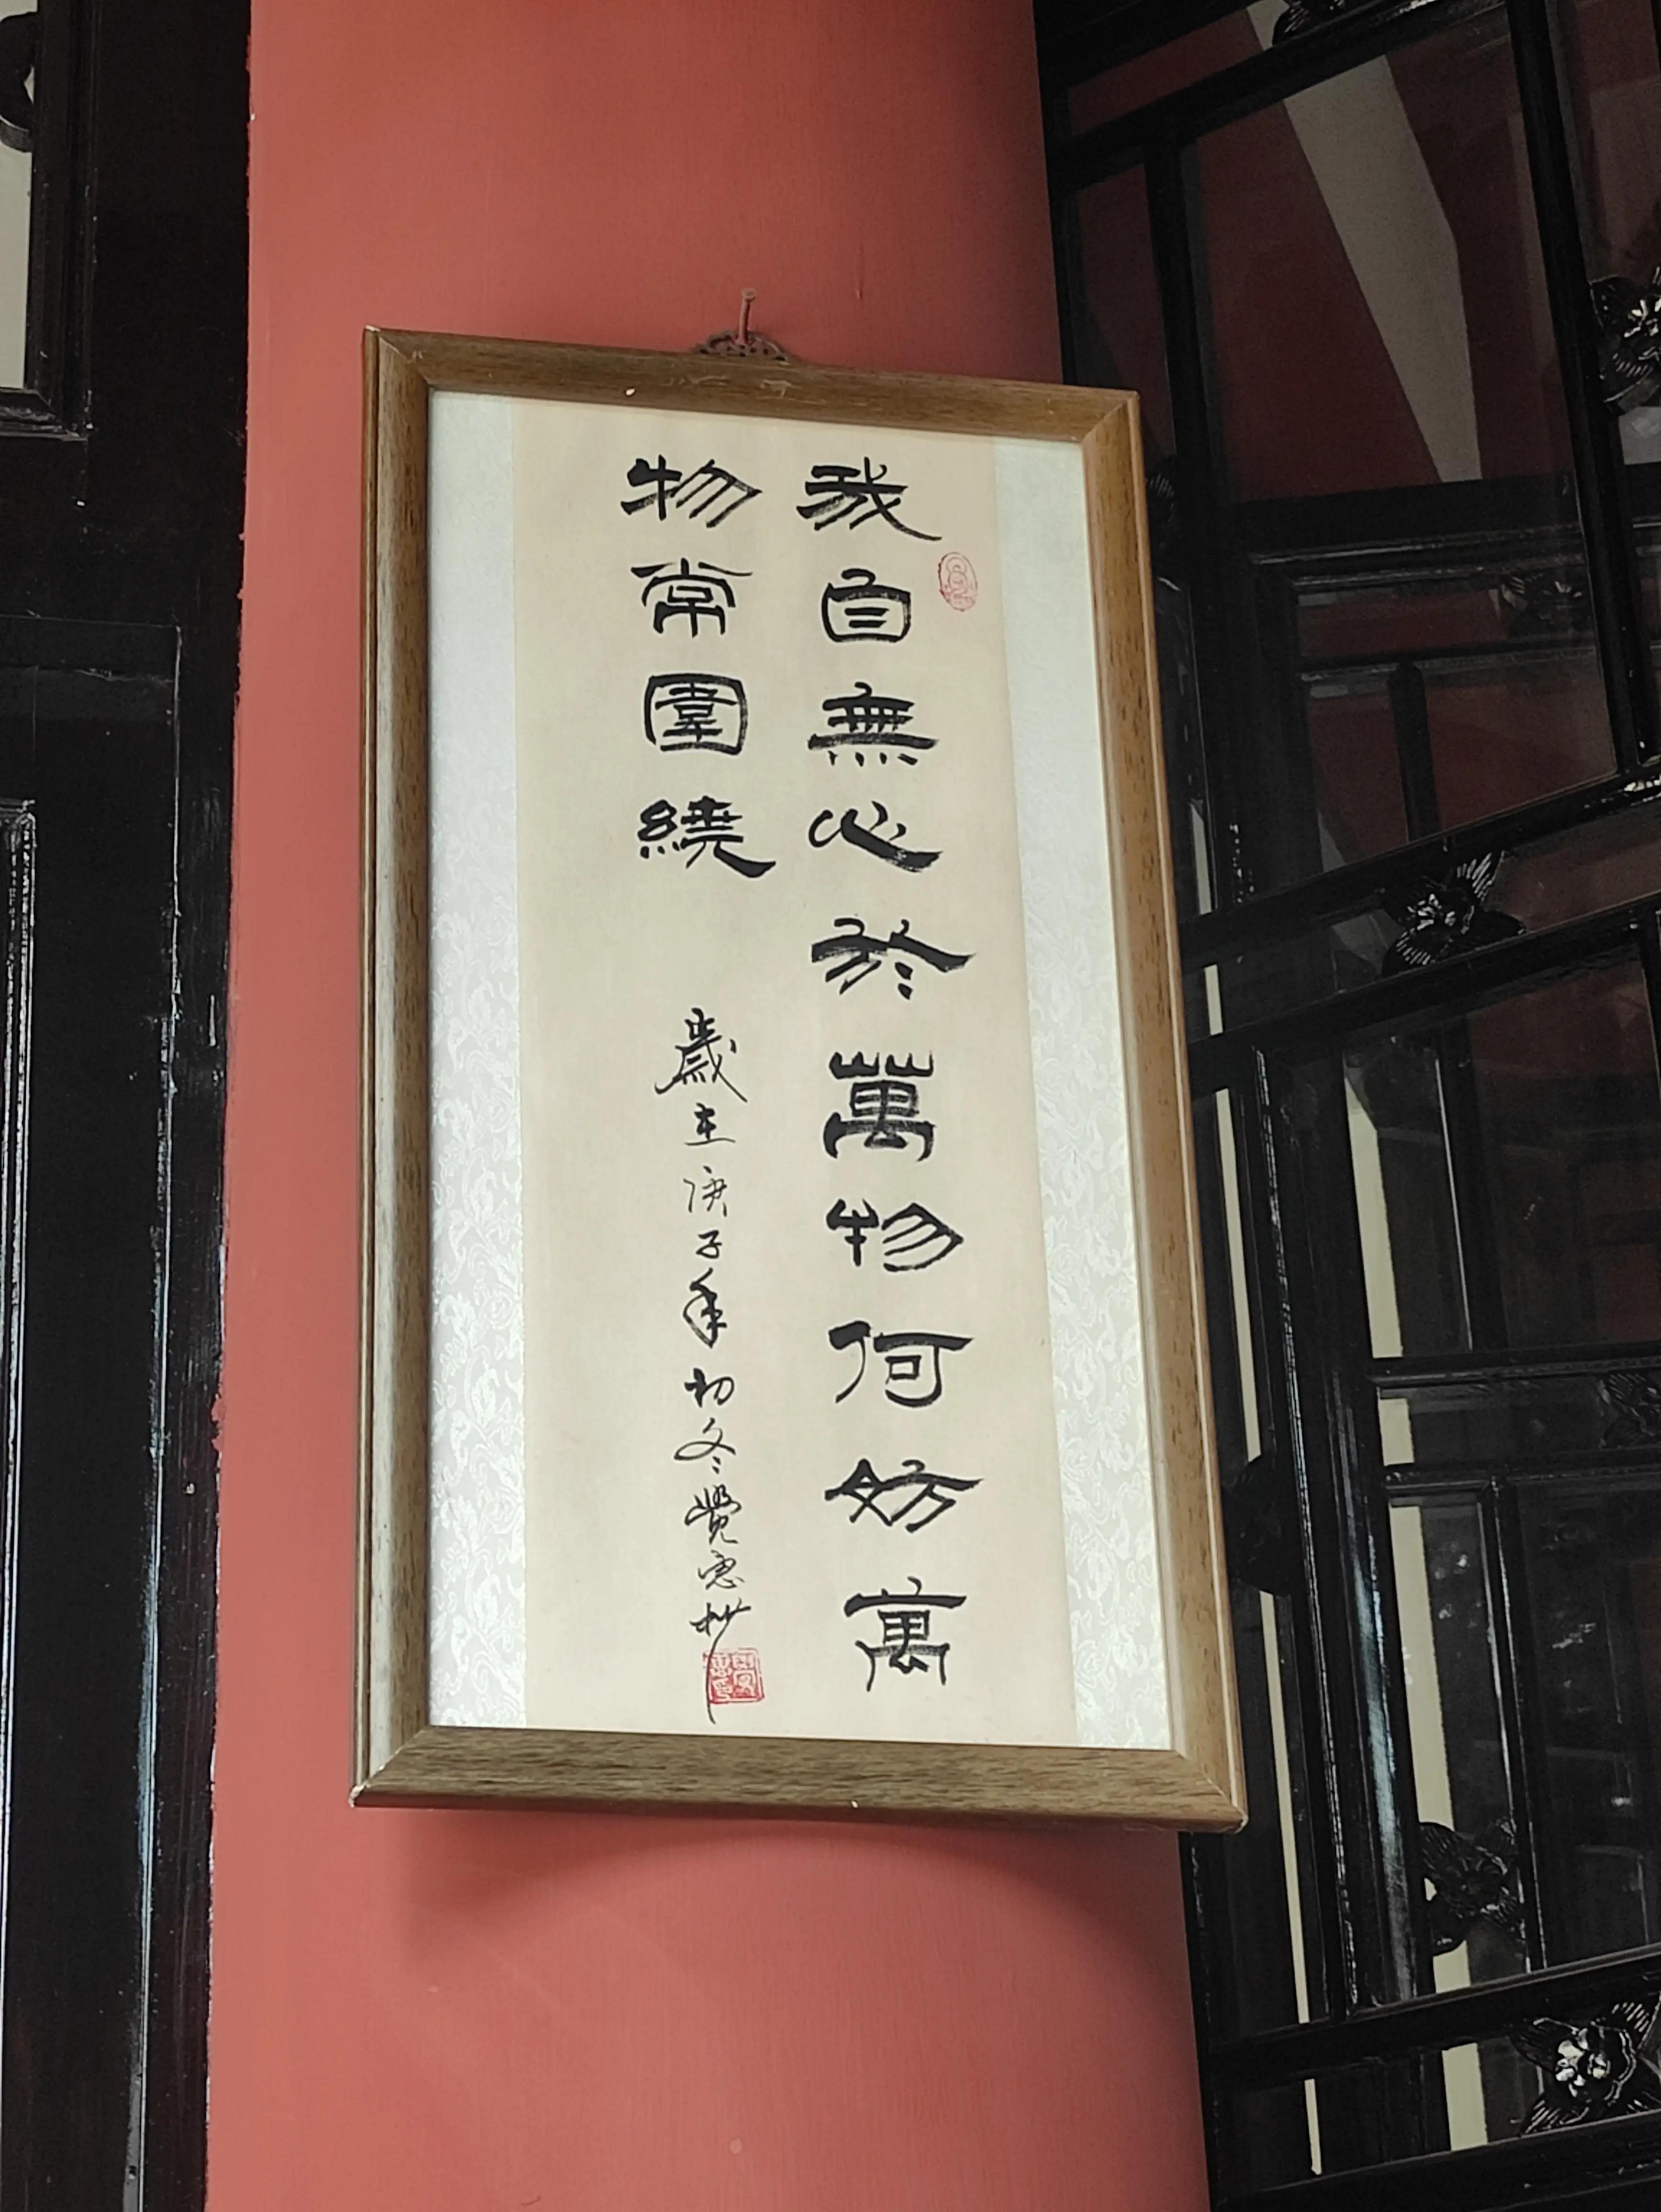 我自無心於萬物何妨萬
物常圍繞
歲在庚子年初冬覺忠抄